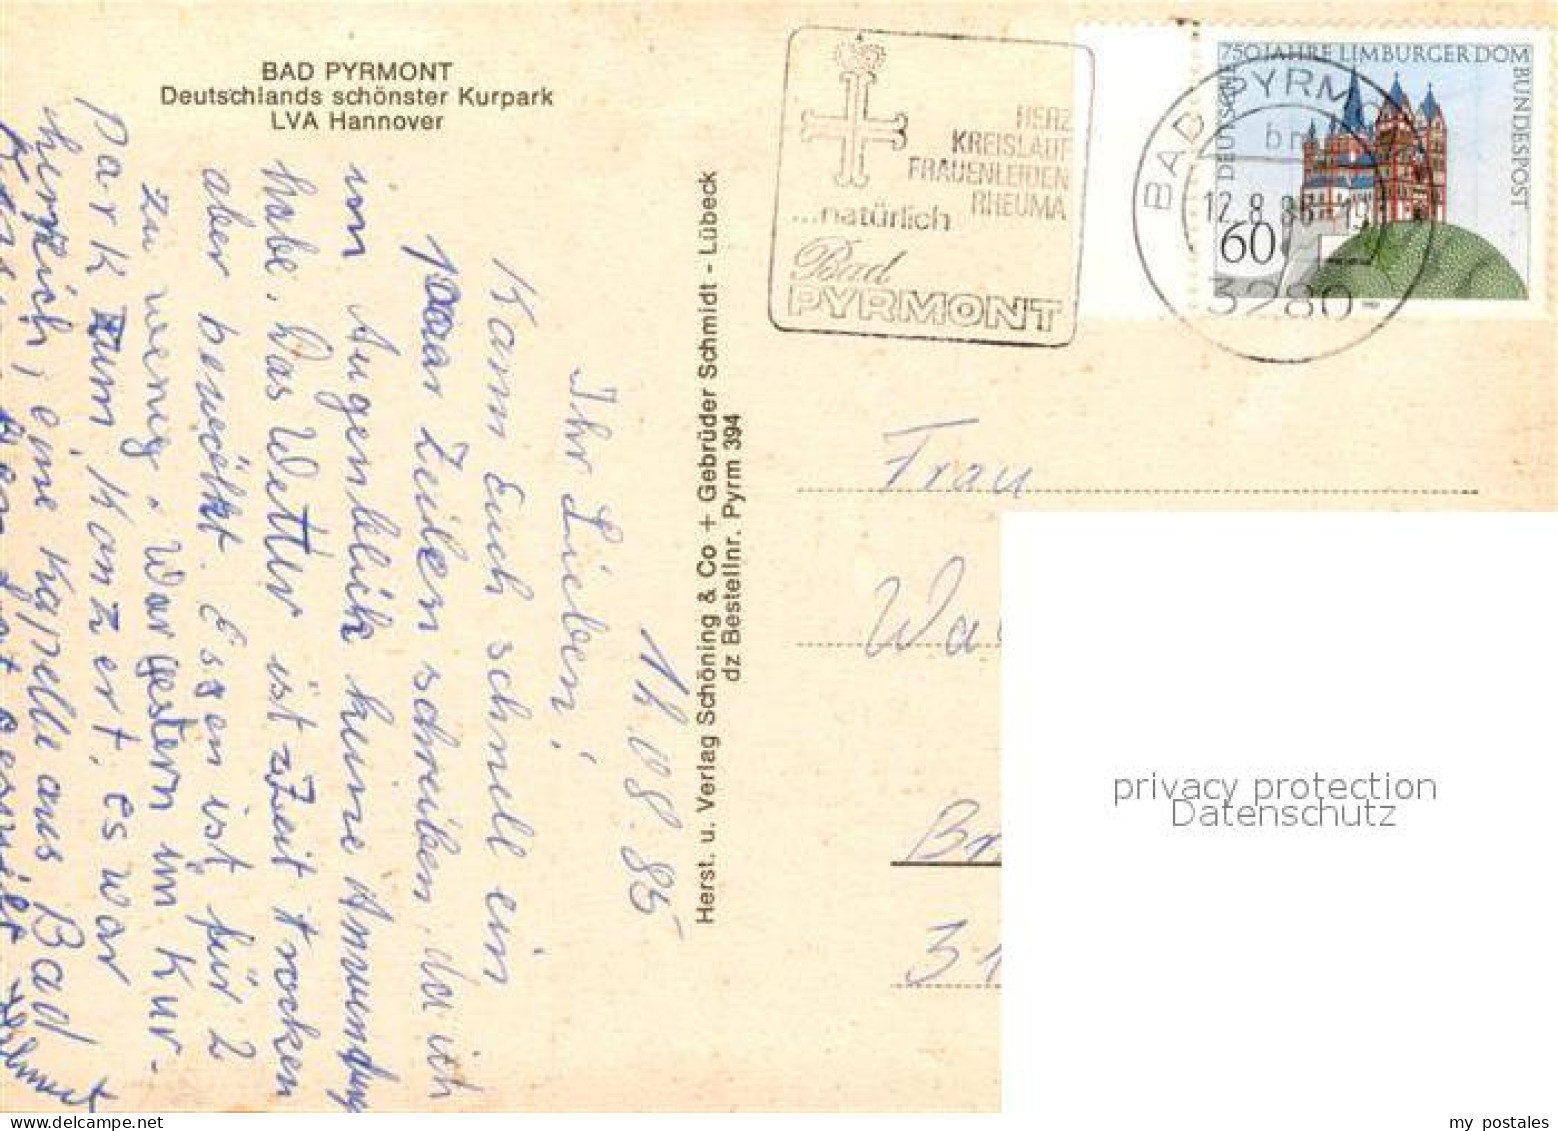 BAD PYRMONT
Deutschlands schönster Kurpark
LVA Hannover
12.08.85
Ihr Lieben!
Kann Euch schnell ein
paar Zeilen schreiben, da ich
im Augenblick keine Anwendung
habe. Das Wetter ist zZeit trocken
aber bewölkt. Essen ist für 2
zu wenig. War gestern im Kur-
park zum Konzert, es war
herrlich, eine Kapelle aus Bad
Herst. u. Verlag Schöning & Co + Gebrüder Schmidt - Lübeck
dz Bestellnr. Pyrm 394
HERZ
KREISLAUF
FRAUENLEIDEN
RHEUMA
...natürlich
Bad
PYRMONT
750 JAHRE LIMBURGER DOM
DEUTSCHE
BUNDESPOST
60
BAD PYRMONT
12.8.85-19
3280
Frau
Wa
Br
31
privacy protection
Datenschutz
my postales